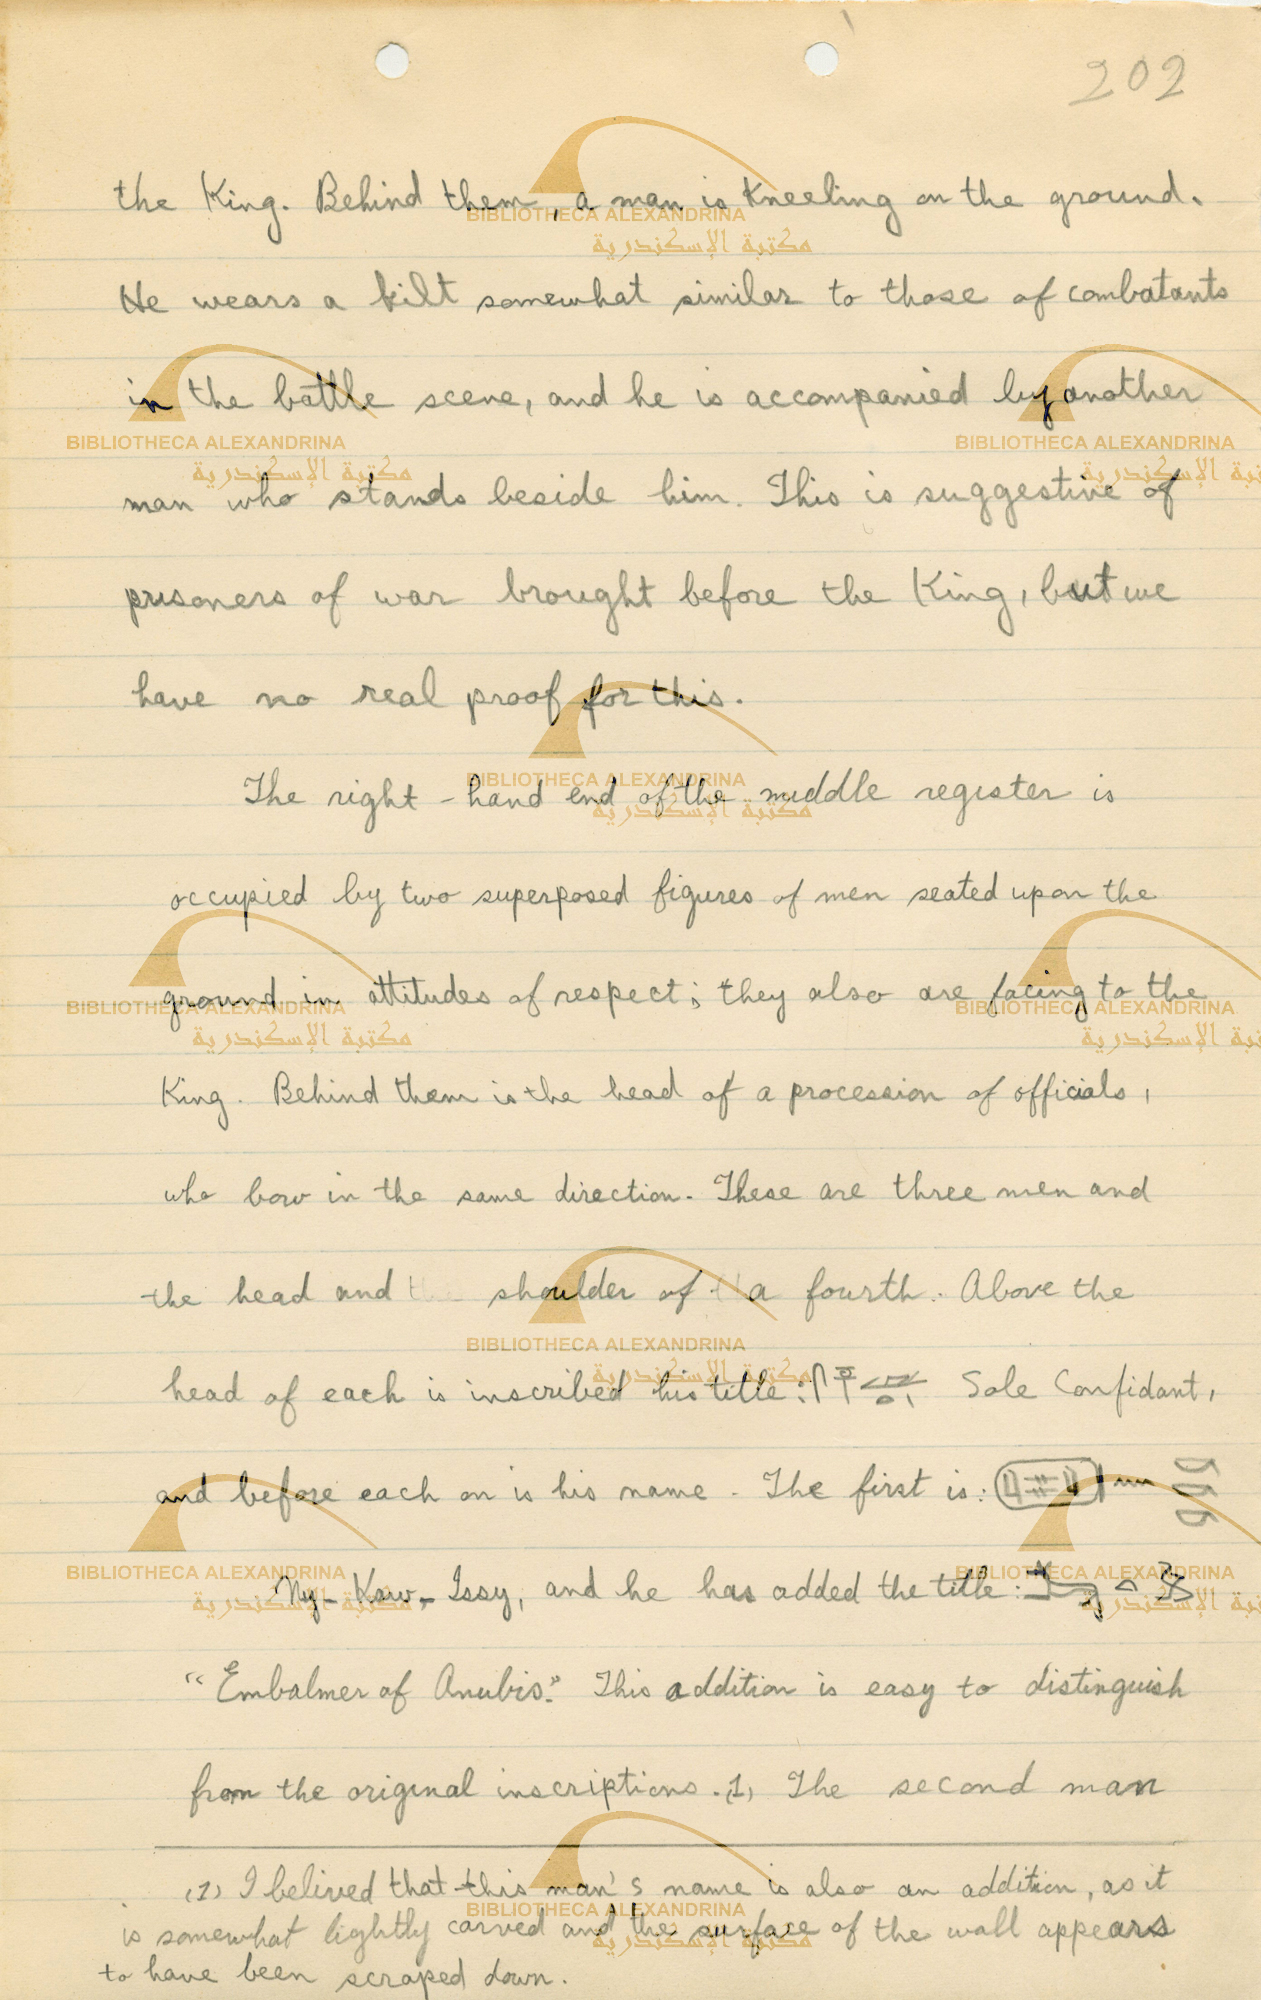 202
the King. Behind them, a man is kneeling on the ground.
He wears a kilt somewhat similar to those of combatants
in the battle scene, and he is accompanied by another
man who stands beside him. This is suggestive of
prisoners of war brought before the King, but we
have no real proof for this.
The right-hand end of the middle register is
occupied by two superposed figures of men seated upon the
ground in attitudes of respect; they also are facing to the
King. Behind them is the head of a procession of officials,
who bow in the same direction. These are three men and
the head and shoulder of a fourth. Above the
head of each is inscribed his title: Sole Confidant,
and before each on is his name. The first is:
Ny-Kaw-Issy, and he has added the title:
"Embalmer of Anubis." This addition is easy to distinguish
from the original inscriptions. (1) The second man
(1) I belived that this man's name is also an addition, as it
is somewhat lightly carved and the surface of the wall appears
to have been scraped down.
BIBLIOTHECA ALEXANDRINA
مكتبة الإسكندرية